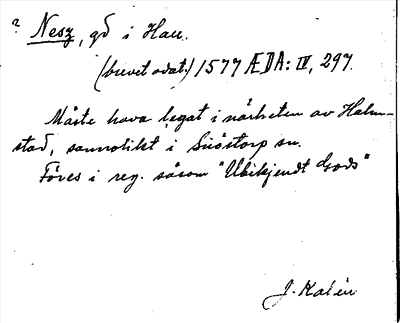 ? Nesz, gd i Hau.
(brevet odat.) 1577 ÆDA: IV, 297.
Måste hava legat i närheten av Halm-
stad, sannolikt i Snöstorp sn.
Föres i reg. såsom "Ubikjendt Gods"
J. Kalén